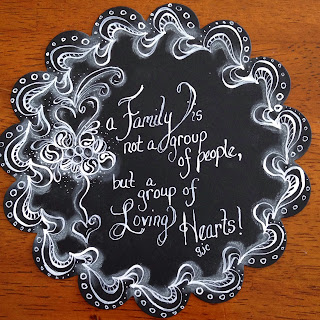 a Family is
not a group
of people,
but a
group of
Loving Hearts!
gjc